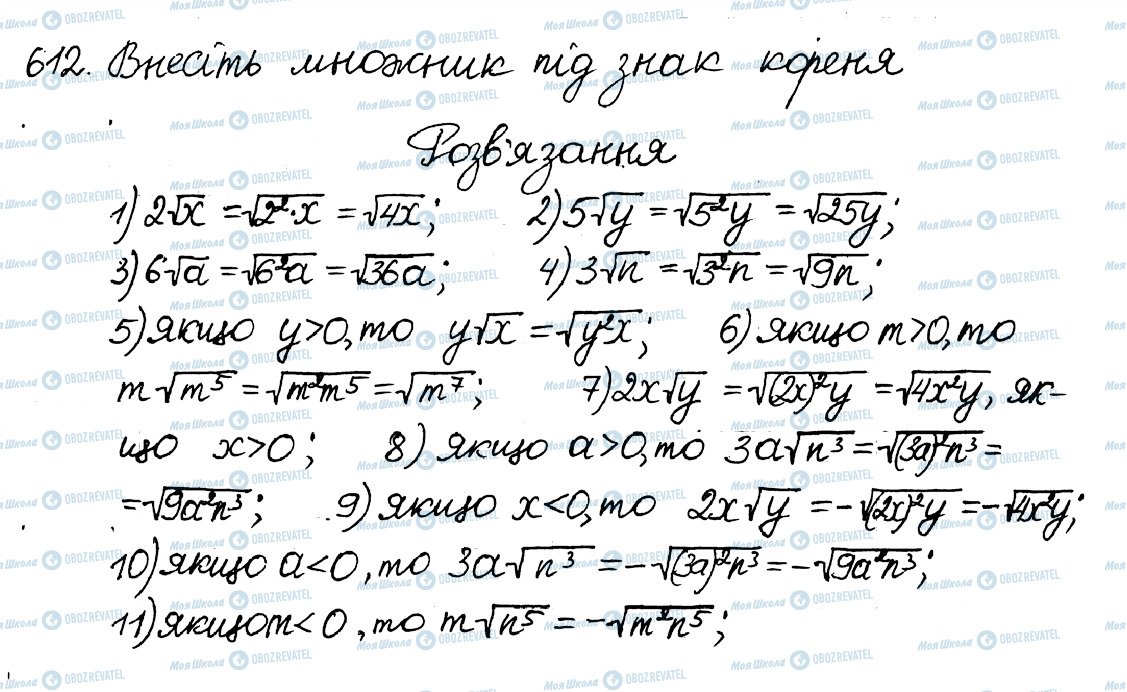 612. Внесіть множник під знак кореня
Розв'язання
1) 2√x = √(2²·x) = √(4x); 2) 5√y = √(5²y) = √(25y);
3) 6√a = √(6²a) = √(36a); 4) 3√n = √(3²n) = √(9n);
5) якщо y>0, то y√x = √(y²x); 6) якщо m>0, то
m√(m⁵) = √(m²m⁵) = √(m⁷); 7) 2x√y = √((2x)²y) = √(4x²y), як-
що x>0; 8) якщо a>0, то 3a√(n³) = √((3a)²n³) =
= √(9a²n³); 9) якщо x<0, то 2x√y = -√((2x)²y) = -√(4x²y);
10) якщо a<0, то 3a√(n³) = -√((3a)²n³) = -√(9a²n³);
11) якщо m<0, то m√(n⁵) = -√(m²n⁵);